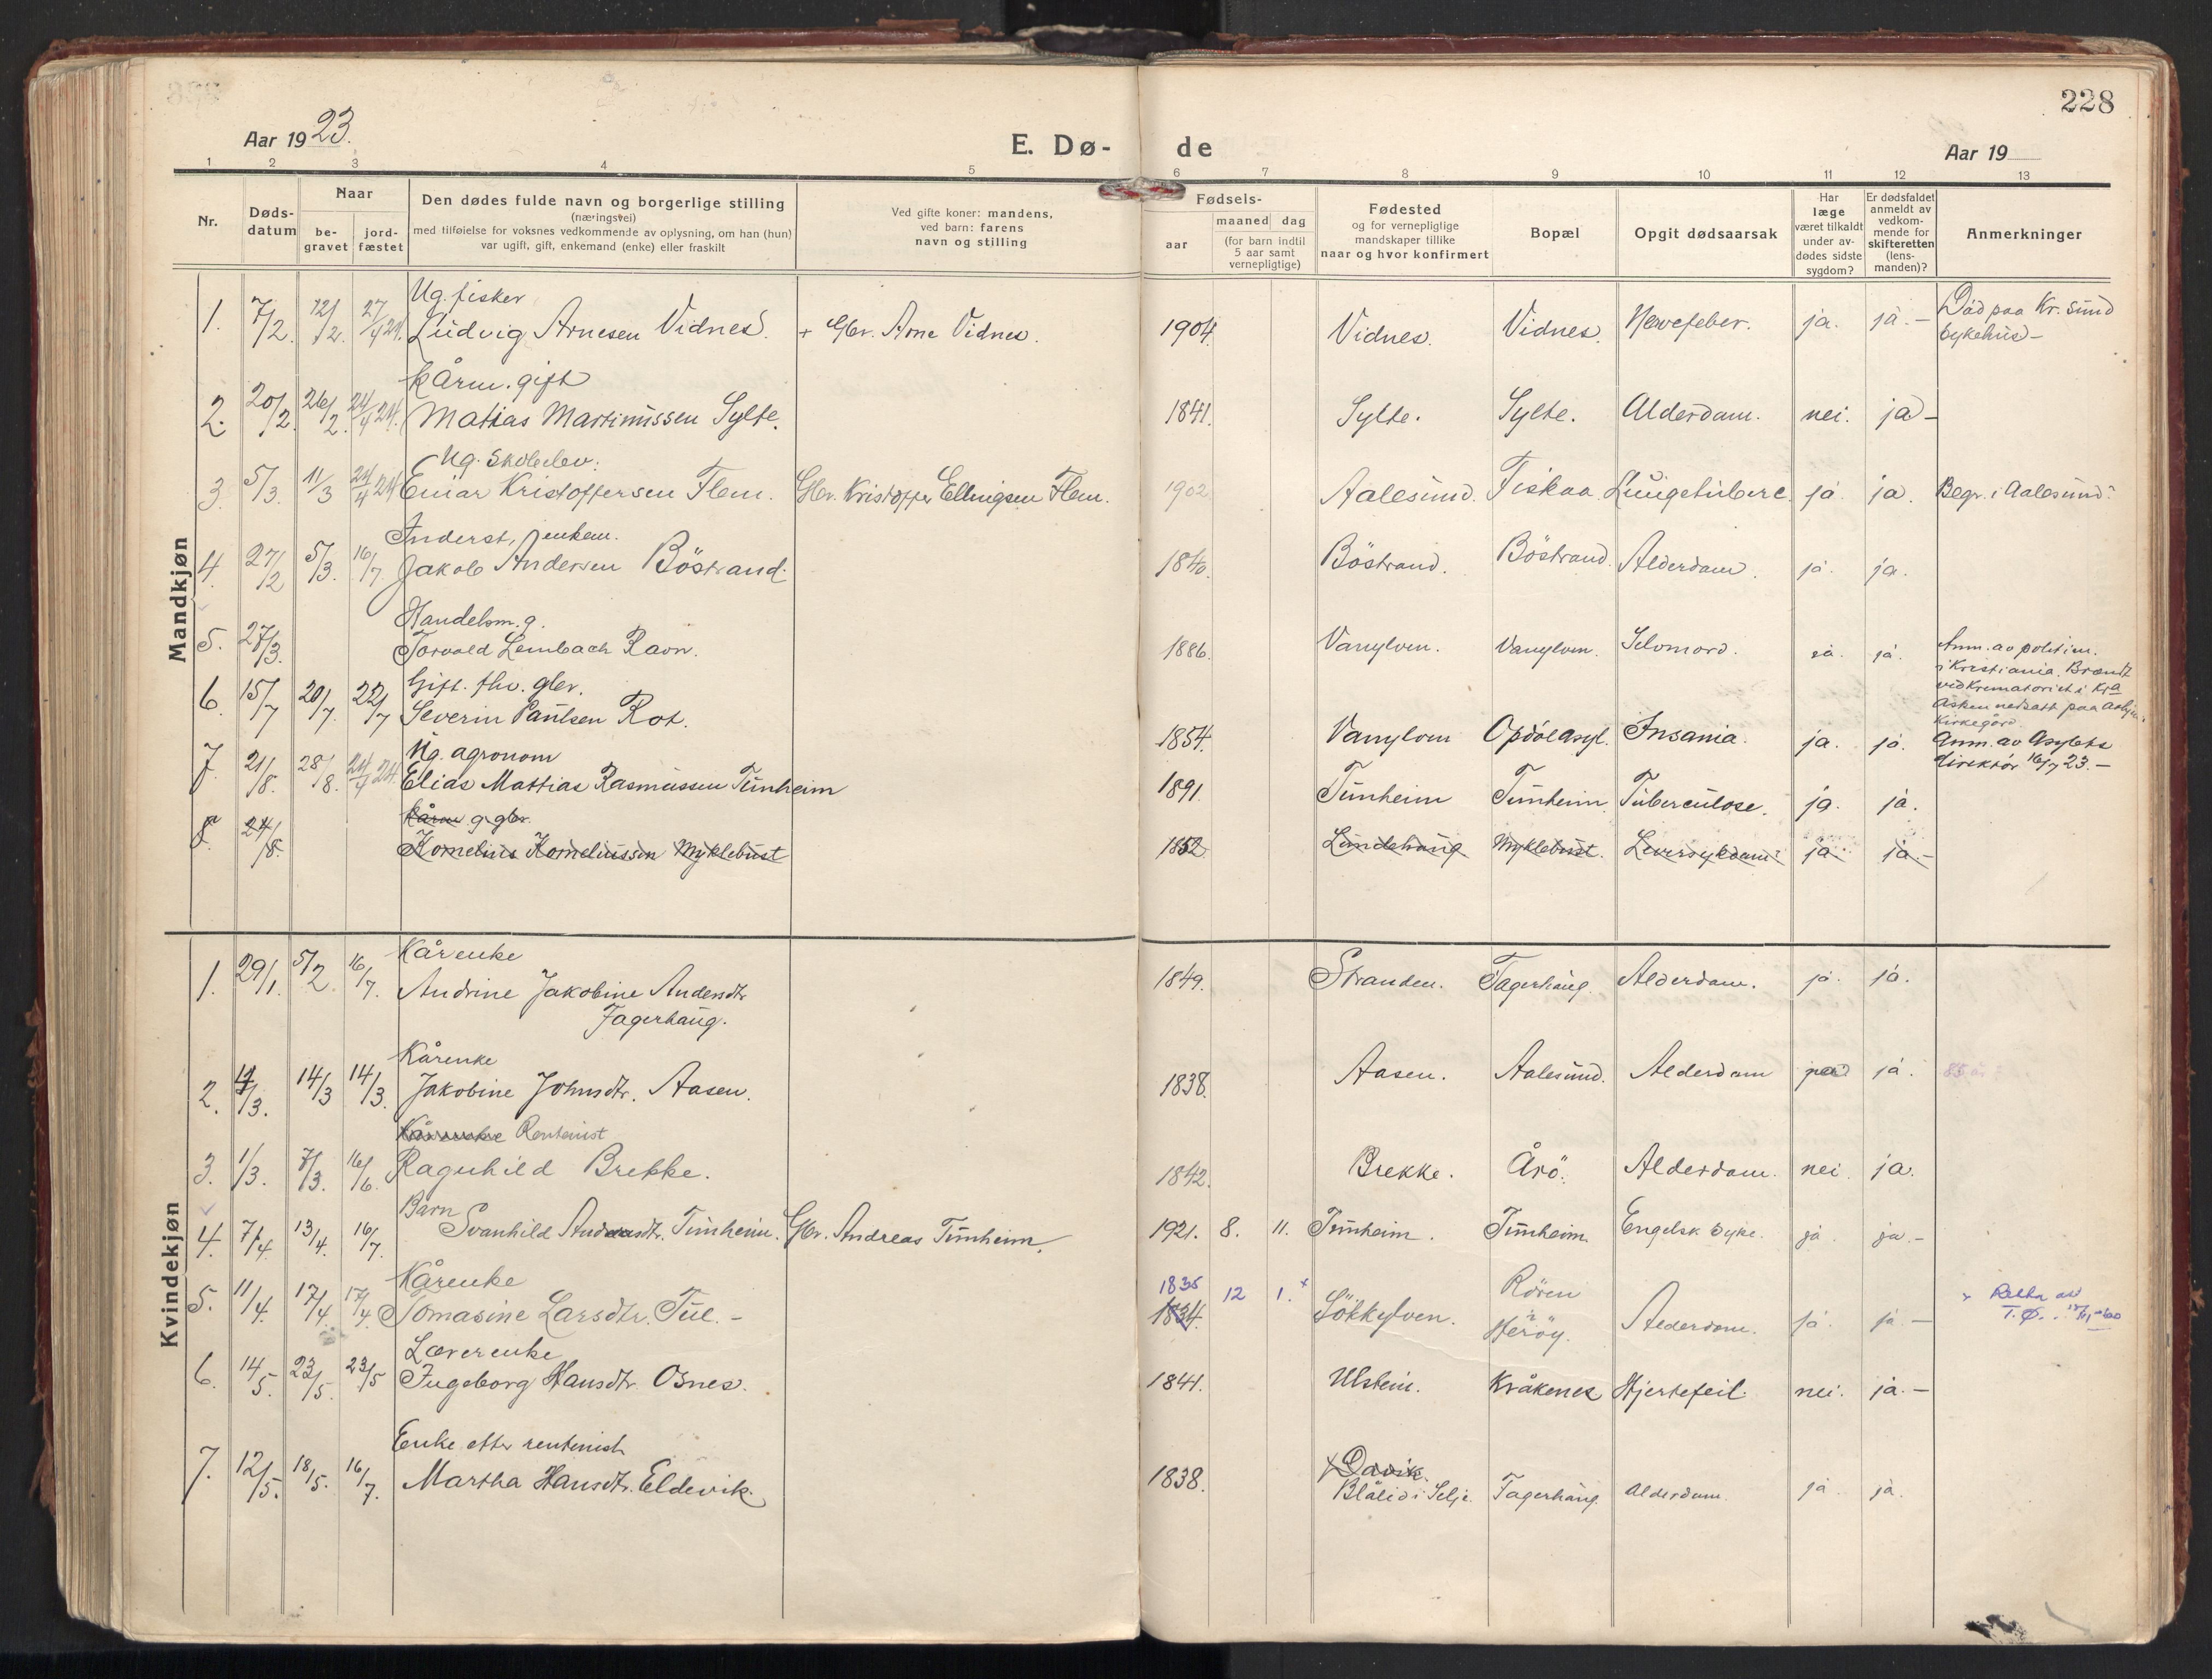 228
Aar 1923.
E. Dø- de
Aar 19
1 2 3 4 5 6 7 8 9 10 11 12 13
Nr.
Døds-
datum
Naar
be-
gravet
jord-
fæstet
Den dødes fulde navn og borgerlige stilling
(næringsvei)
med tilføielse for voksnes vedkommende av oplysning, om han (hun)
var ugift, gift, enkemand (enke) eller fraskilt
Ved gifte koner: mandens,
ved barn: farens
navn og stilling
Fødsels-
aar
maaned dag
(for barn indtil
5 aar samt
vernepligtige)
Fødested
og for vernepligtige
mandskaper tillike
naar og hvor konfirmert
Bopæl
Opgit dødsaarsak
Har
læge
været tilkaldt
under av-
dødes sidste
sygdom?
Er dødsfaldet
anmeldt av
vedkom-
mende for
skifteretten
(lens-
manden)?
Anmerkninger
Mandkjøn
Ug. fisker
1. 7/2. 12/2. 27/4 24. Ludvig Arnesen Vidnes. + Gbr. Arne Vidnes. 1904. Vidnes. Vidnes. Nervefeber. ja. ja.- Död paa Kr.sund
sykehus-
Kårm. gift
2. 20/2. 26/2. 24/4 24. Matias Martinussen Sylte. 1841. Sylte. Sylte. Alderdom. nei. ja-
Ug. skoleelev.
3. 5/3. 11/3 24/4 24 Einar Kristoffersen Flem. Gbr. Kristoffer Ellingsen Flem. 1902 Aalesund. Fiskaa. ja. ja. Begr. i Aalesund.
Inderst, enkem.
4. 27/2 5/3. 16/7. Jakob Andersen Böstrand. 1840. Böstrand. Böstrand. Alderdom. ja. ja.
Handelsm. g.
5. 27/3. Torvald Lembach Ravn. 1886. Vanylven. Vanylven. Selvmord. ja. ja. Anm. av politim.
i Kristiania. Brændt
ved Krematoriet i Kra
Asken nedsatt paa
Kirkegård
Gift. fhv. gbr.
6. 15/7 20/7. 22/7 Severin Paulsen Rot. 1854. Vanylven Opdöl asyl. Insania. ja. ja. Anm. av Asylets
direktör 16/7 23.-
Ug. agronom
7. 21/8. 28/8. 24/4 24. Elias Mattias Rasmussen Tunheim 1891. Tunheim Tunheim. Tuberculose. ja. ja.
Kårm g. gbr.
8. 24/8. Kornelius Korneliussen Myklebust 1852 Lindehaug Myklebust. Leversykdom ja ja.-
Kvindekjøn
Kårenke
1. 29/1. 5/2 16/7. Andrine Jakobine Andersdtr 1849. Stranden. Fagerhaug. Alderdom. ja. ja.
Fagerhaug.
Kårenke
2. 14/3 14/3. Jakobine Johnsdtr. Aasen. 1838. Aasen. Aalesund. Alderdom ja.
Kårenke Rentenist
3. 1/3. 7/3. 16/6. Ragnhild Brekke. 1842. Brekke. Årö. Alderdom. nei. ja.
Barn
4. 7/4. 13/4. 16/7. Svanhild Andreasdtr. Tunheim. Gbr. Andreas Tunheim. 1921. 8. 11. Tunheim. Tunheim. Engelsk syke. ja. ja.-
Kårenke
1835
5. 11/4. 17/4. 17/4. Tomasine Larsdtr. Tue.- 1834. 12 1. x Sökkelven. Rören
i Heröy. Alderdom. ja. ja.- x Retta av
T.Ø.
Lærerenke
6. 14/5. 23/5. 23/5 Ingeborg Hansdtr. Osnes. 1841. Ulstein. Kråkenes Hjertefeil. nei. ja.-
Enke efter rentenist
7. 12/5. 18/5. 16/7. Martha Hansdtr. Eldevik. 1838. Davik.
Blålid i Selje. Fagerhaug. Alderdom. ja. ja.